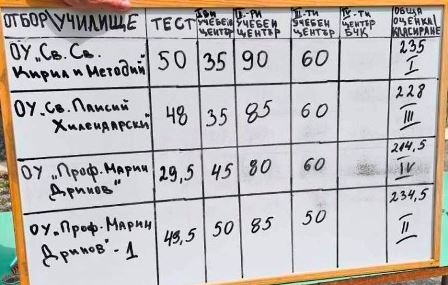 ОТБОР\УЧИЛИЩЕ ТЕСТ I-ВИ УЧЕБЕН ЦЕНТЪР II-РИ УЧЕБЕН ЦЕНТЪР III-ТИ УЧЕБЕН ЦЕНТЪР IV-ТИ ЦЕНТЪР БЧК ОБЩА ОЦЕНКА/КЛАСИРАНЕ
ОУ „Св. Св. Кирил и Методий" 50 35 90 60 235 I
ОУ „Св. Паисий Хилендарски" 48 35 85 60 228 III
ОУ „Проф. Марин Дринов" 29,5 45 80 60 214,5 IV
ОУ „Проф. Марин Дринов" - 1 49,5 50 85 50 234,5 II